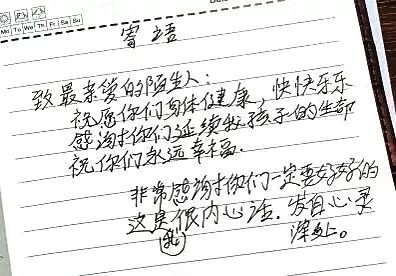 Mo Tu We Th Fr Sa Su
寄语
致最亲爱的陌生人：
祝愿你们身体健康，快快乐乐
感谢你们延续我孩子的生命
祝你们永远幸福.
非常感谢你们一定要好好的
这是我内心话．发自心灵
深处。